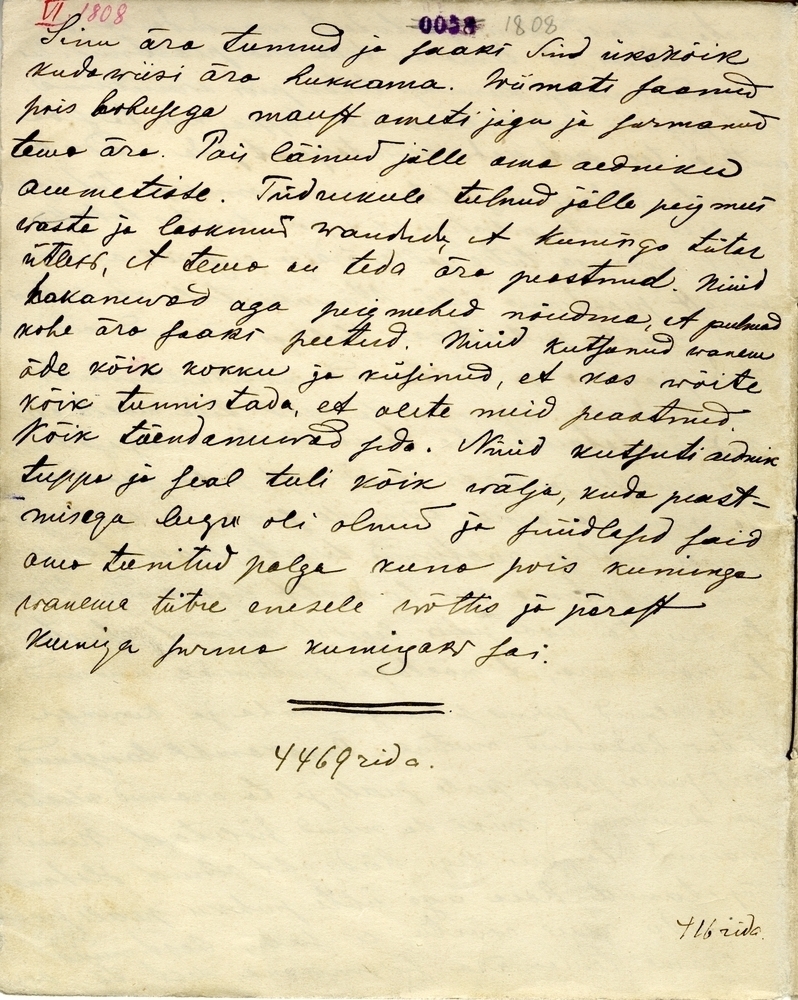 VI 1808
0058 1808
Sinu ära tunnud ja saaks Sind ükskõik
kudawiisi ära hukkama. Wiimati saanud
pois kohusega maust ometi jägu ja surmanud
tema ära. Pois läinud jälle oma aedniku
ammetisse. Tüdrukule tulnud jälle peigmeis
wasta ja lasknud wanduda, et Kuninga tütar
ütleks, et tema on teda ära peastnud. Nüüd
hakanuwad aga peigmehed nõudma, et pulmad
kohe ära saaks peetud. Nüüd kutsunud wanem
õde kõik kokku ja küsinud, et kas wõite
kõik tunnistada, et olete meid peastnud.
Kõik tõendanuwad seda. Nüüd kutsuti aednik
tuppa ja seal tuli kõik wälja, kuda peast-
misega lugu oli olnud ja süüdlased said
oma teenitud palga kuna pois kuninga
wanema tütre enesele wõttis ja pärast
Kuniga surma kunigaks sai.
4469 rida.
416 rida.